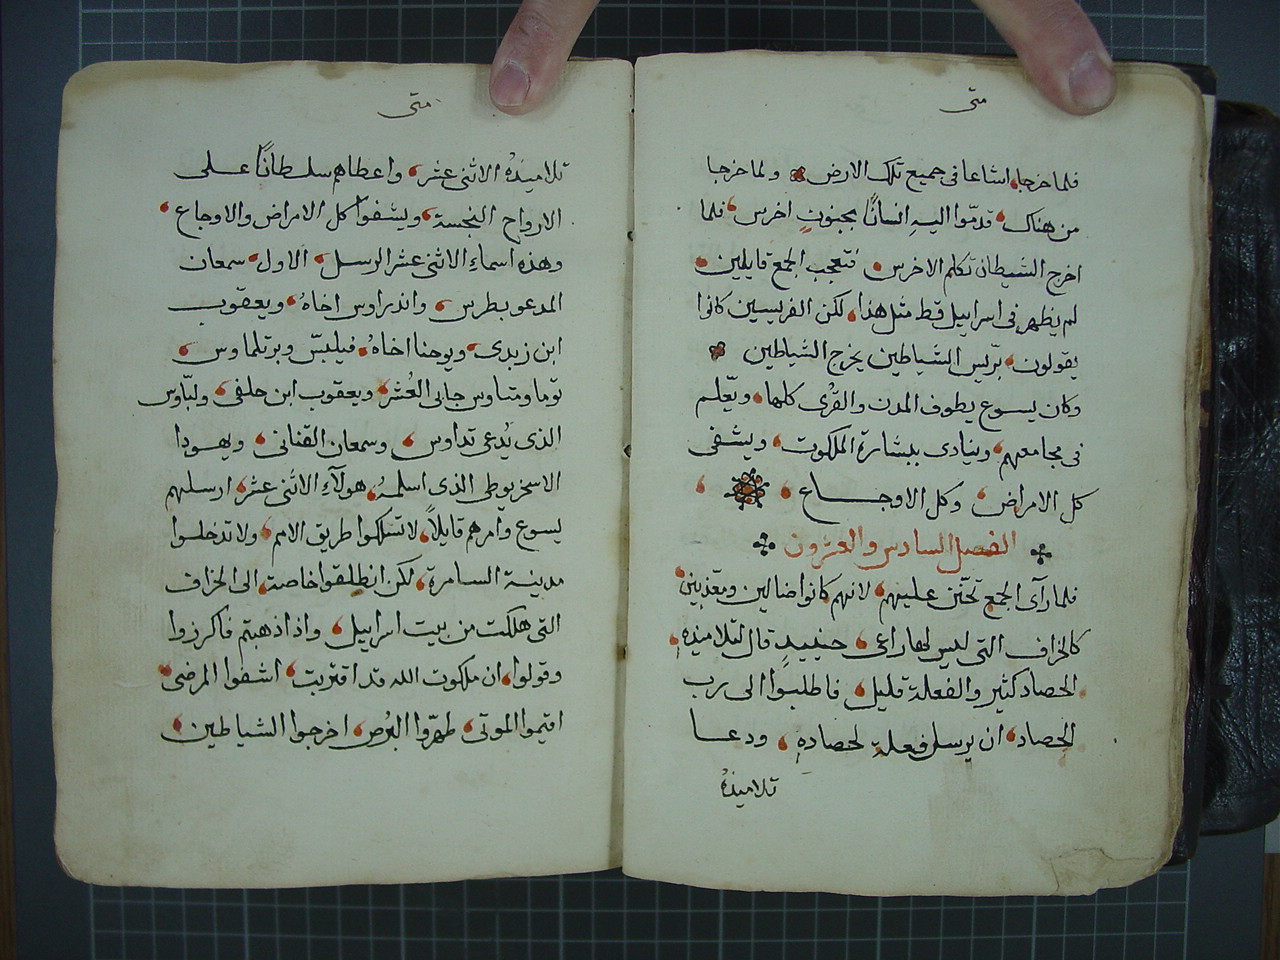 متى
فلما خرجا اشاعا فى جميع تلك الارض ولما خرجا
من هناك قدموا اليه انسانًا بجنونٍ اخرس فلما
اخرج الشيطان تكلم الاخرس فتعجب الجمع قايلين
لم يظهر فى اسراييل قط مثل هذا لكن الفريسيين كانوا
يقولون بريس الشياطين يخرج الشياطين
وكان يسوع يطوف المدن والقرى كلها ويعّلم
فى مجامعهم وينادى ببشارة الملكوت ويشفى
كل الامراض وكل الاوجاع
الفصل السادس والعشرون
فلما رآى الجمع تحنن عليهم لانهم كانوا ضالين ومعّذبين
كالخراف التى ليس لها راعى حينيدٍ قال لتلاميذه
الحصاد كثير والفعلة قليل فاطلبوا الى رب
الحصاد ان يرسل فعلة لحصاده ودعا
تلاميذهُ
متى
تلاميذهُ الاثنى عشر واعطاهم سلطانًا على
الارواح النجسة ويشفوا كل الامراض والاوجاع
وهذه اسماء الاثنى عشر الرسل الاول سمعان
المدعو بطرس واندراوس اخاهُ ويعقوب
ابن زبدى ويوحنا اخاهُ فيلبسّ وبرتلماوس
توما ومتاوس جابى العُشر ويعقوب ابن حلفى ولبّاوس
الذى يُدعى تداوس وسمعان القنانى ويهودا
الاسخريوطى الذى اسلمهُ هولآء الاثنى عشر ارسلهم
يسوع وآمرهم قايلاً لا تسلكوا طريق الامم ولا تدخلوا
مدينة السامرة لكن انطلقوا خاصة الى الخراف
التى هلكت من بيت اسراييل واذا ذهبتم فاكرزوا
وقولوا ان ملكوت الله قد اقتربت اشفوا المرضى
اقيموا الموتى طهّروا البُرص اخرجوا الشياطين